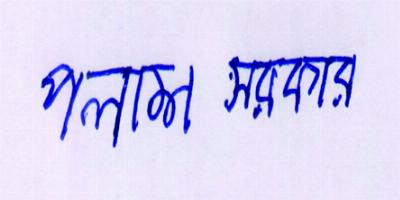 পলাশ সরকার